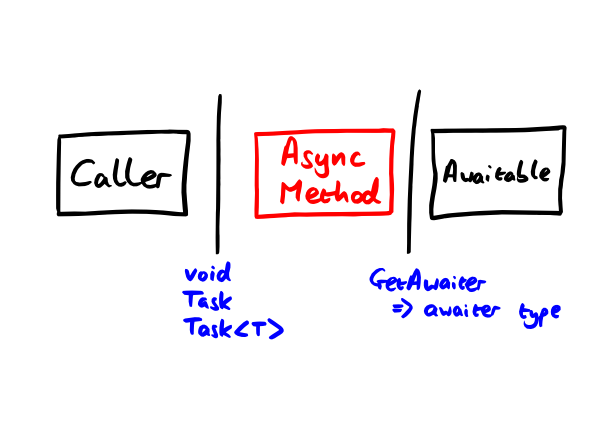 Caller
Async
Method
Awaitable
void
Task
Task<T>
GetAwaiter
=> awaiter type